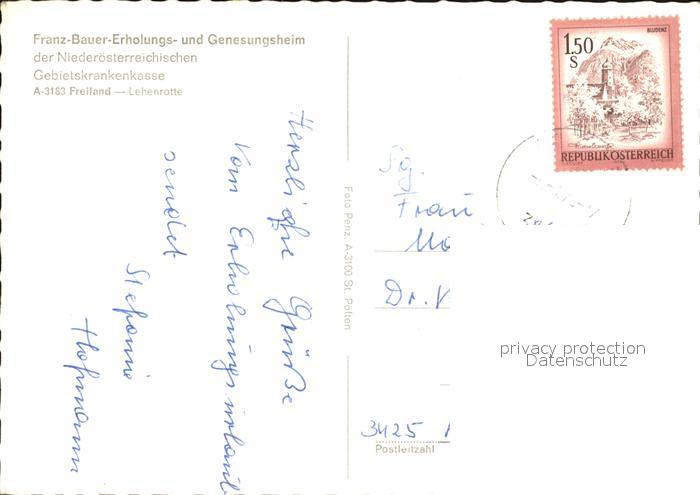 Franz-Bauer-Erholungs- und Genesungsheim
der Niederösterreichischen
Gebietskrankenkasse
A-3183 Freiland — Lehenrotte
Herzliche Grüße
vom Erholungsurlaub
sendet
Stefanie
Hofmann
Foto Penz, A-3100 St. Pölten
BLUDENZ
1.50
S
REPUBLIK ÖSTERREICH
Sg.
Frau
Dr.
3425
Postleitzahl
privacy protection
Datenschutz